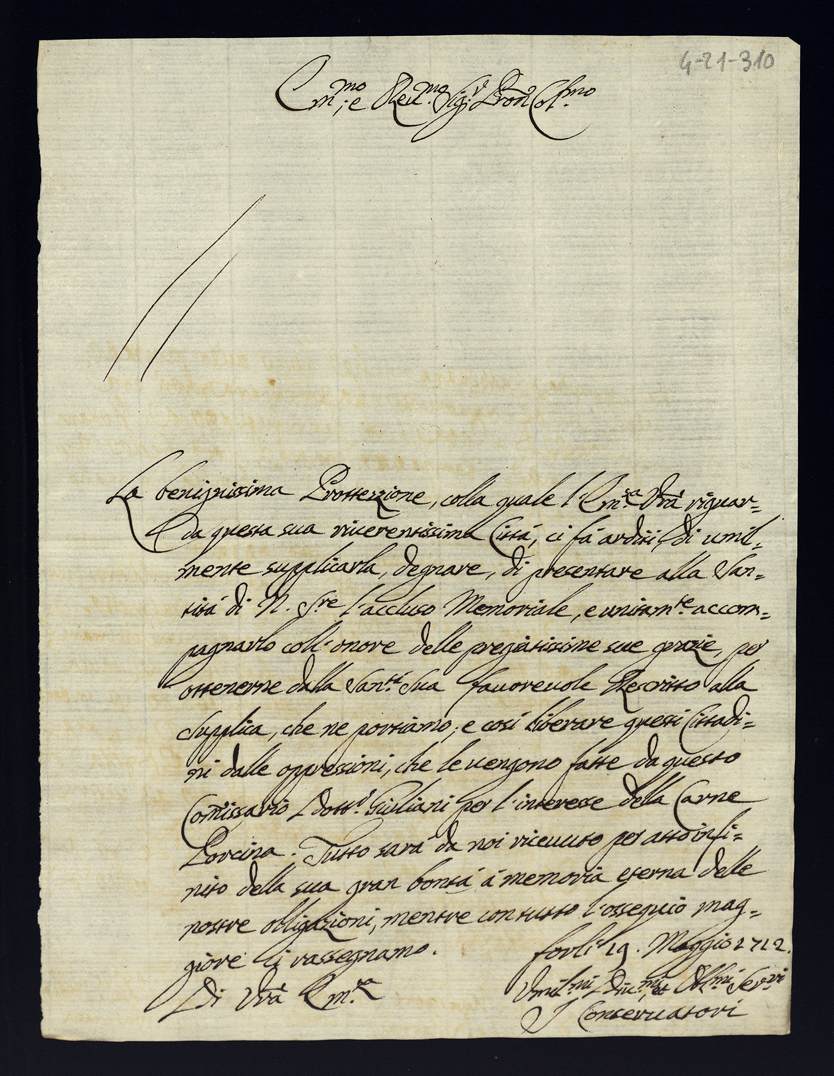 4-21-310
Em.mo, e Reu.mo Sig.r Pron Col.mo
La benignissima Prottezzione, colla quale l'Em.za Vrã riguar=
da questa sua riverentissima Città, ci fà arditi, di umil=
mente supplicarla, degnare, di presentare alla San=
tità di N. Sre l'accluso Memoriale, e unitam.te accom=
pagnarlo coll'onore delle pregiatissime sue grazie, per
ottenerne dalla San.tà Sua favorevole Rescritto alla
Supplica, che ne portiamo, e così liberare questi Cittadi=
ni dalle oppressioni, che le vengono fatte da questo
Comissario Dott.r Giuliani per l'interesse della Carne
Porcina. Tutto sarà da noi ricevuto per atto infi=
nito della sua gran bontà à memoria eterna delle
nostre obligazioni, mentre con tutto l'ossequio mag=
giore ci rassegnamo.
Forlì 19. Maggio 1712.
Di Vrã Em.za
Umil.mi Diu.mi, et Obl.mi Ser.ri
I Conservatori